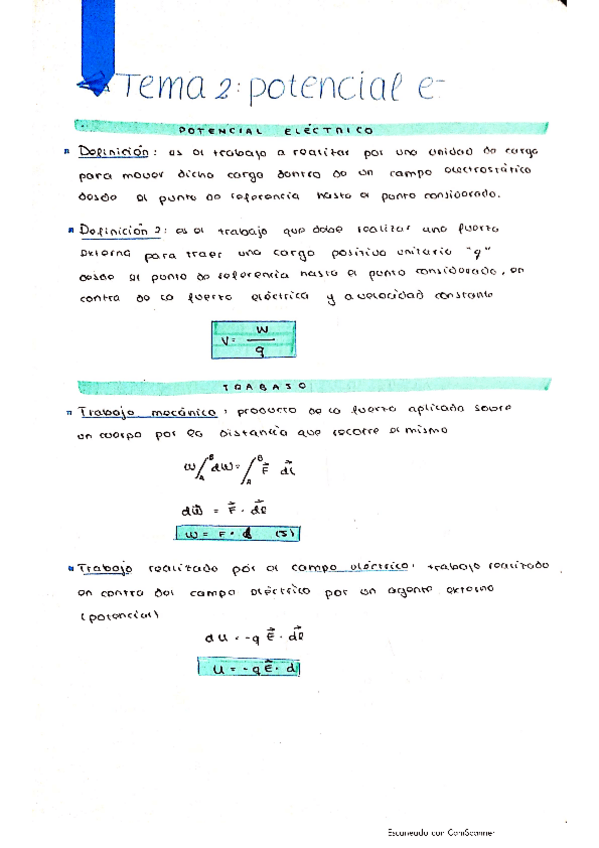 Tema 2: potencial e-
POTENCIAL ELÉCTRICO
Definición: es el trabajo a realizar por una unidad de carga
para mover dicha carga dentro de un campo electrostático
desde el punto de referencia hasta el punto considerado.
Definición 2: es el trabajo que debe realizar una fuerza
externa para traer una carga positiva unitaria "q"
desde el punto de referencia hasta el punto considerado, en
contra de la fuerza eléctrica y a velocidad constante
V = W / q
TRABAJO
Trabajo mecánico: producto de la fuerza aplicada sobre
un cuerpo por la distancia que recorre el mismo
W ∫_A^B dw = ∫_A^B F⃗ dl⃗
dw = F⃗ · dl⃗
W = F · d (J)
Trabajo realizado por el campo eléctrico: trabajo realizado
en contra del campo eléctrico por un agente externo
(potencial)
du = -q E⃗ · dl⃗
U = -q E⃗ · d
Escaneado con CamScanner